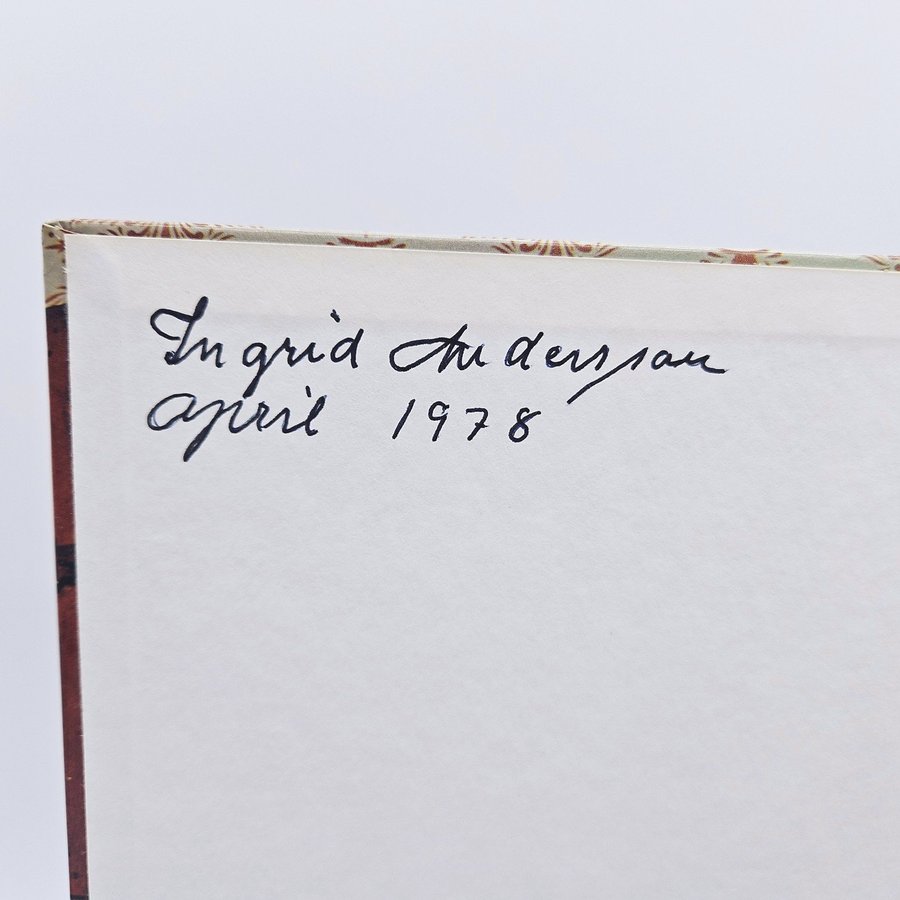 Ingrid Andersson
April 1978